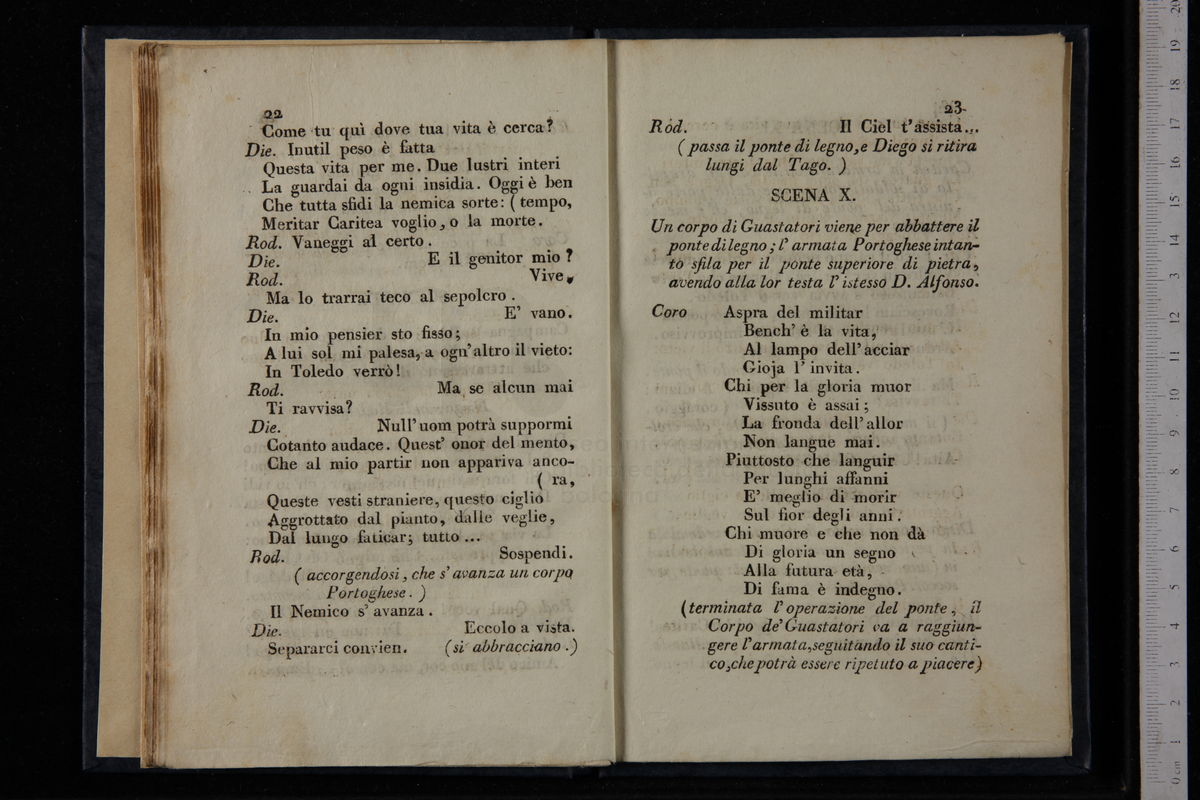 22
Come tu quì dove tua vita è cerca?
Die. Inutil peso è fatta
Questa vita per me. Due lustri interi
La guardai da ogni insidia. Oggi è ben
Che tutta sfidi la nemica sorte: ( tempo,
Meritar Caritea voglio, o la morte.
Rod. Vaneggi al certo.
Die. E il genitor mio?
Rod. Vive,
Ma lo trarrai teco al sepolcro.
Die. E' vano.
In mio pensier sto fisso;
A lui sol mi palesa, a ogn'altro il vieto:
In Toledo verrò!
Rod. Ma se alcun mai
Ti ravvisa?
Die. Null'uom potrà suppormi
Cotanto audace. Quest' onor del mento,
Che al mio partir non appariva anco-
( ra,
Queste vesti straniere, questo ciglio
Aggrottato dal pianto, dalle veglie,
Dal lungo faticar; tutto ...
Rod. Sospendi.
( accorgendosi, che s'avanza un corpo
Portoghese. )
Il Nemico s'avanza.
Die. Eccolo a vista.
Separarci convien. (si abbracciano.)
23
Rod. Il Ciel t'assista...
(passa il ponte di legno, e Diego si ritira
lungi dal Tago. )
SCENA X.
Un corpo di Guastatori viene per abbattere il
ponte di legno; l'armata Portoghese intan-
to sfila per il ponte superiore di pietra,
avendo alla lor testa l'istesso D. Alfonso.
Coro Aspra del militar
Bench' è la vita,
Al lampo dell'acciar
Gioja l'invita.
Chi per la gloria muor
Vissuto è assai;
La fronda dell'allor
Non langue mai.
Piuttosto che languir
Per lunghi affanni
E' meglio di morir
Sul fior degli anni.
Chi muore e che non dà
Di gloria un segno
Alla futura età,
Di fama è indegno.
(terminata l'operazione del ponte, il
Corpo de'Guastatori va a raggiun-
gere l'armata, seguitando il suo canti-
co, che potrà essere ripetuto a piacere)